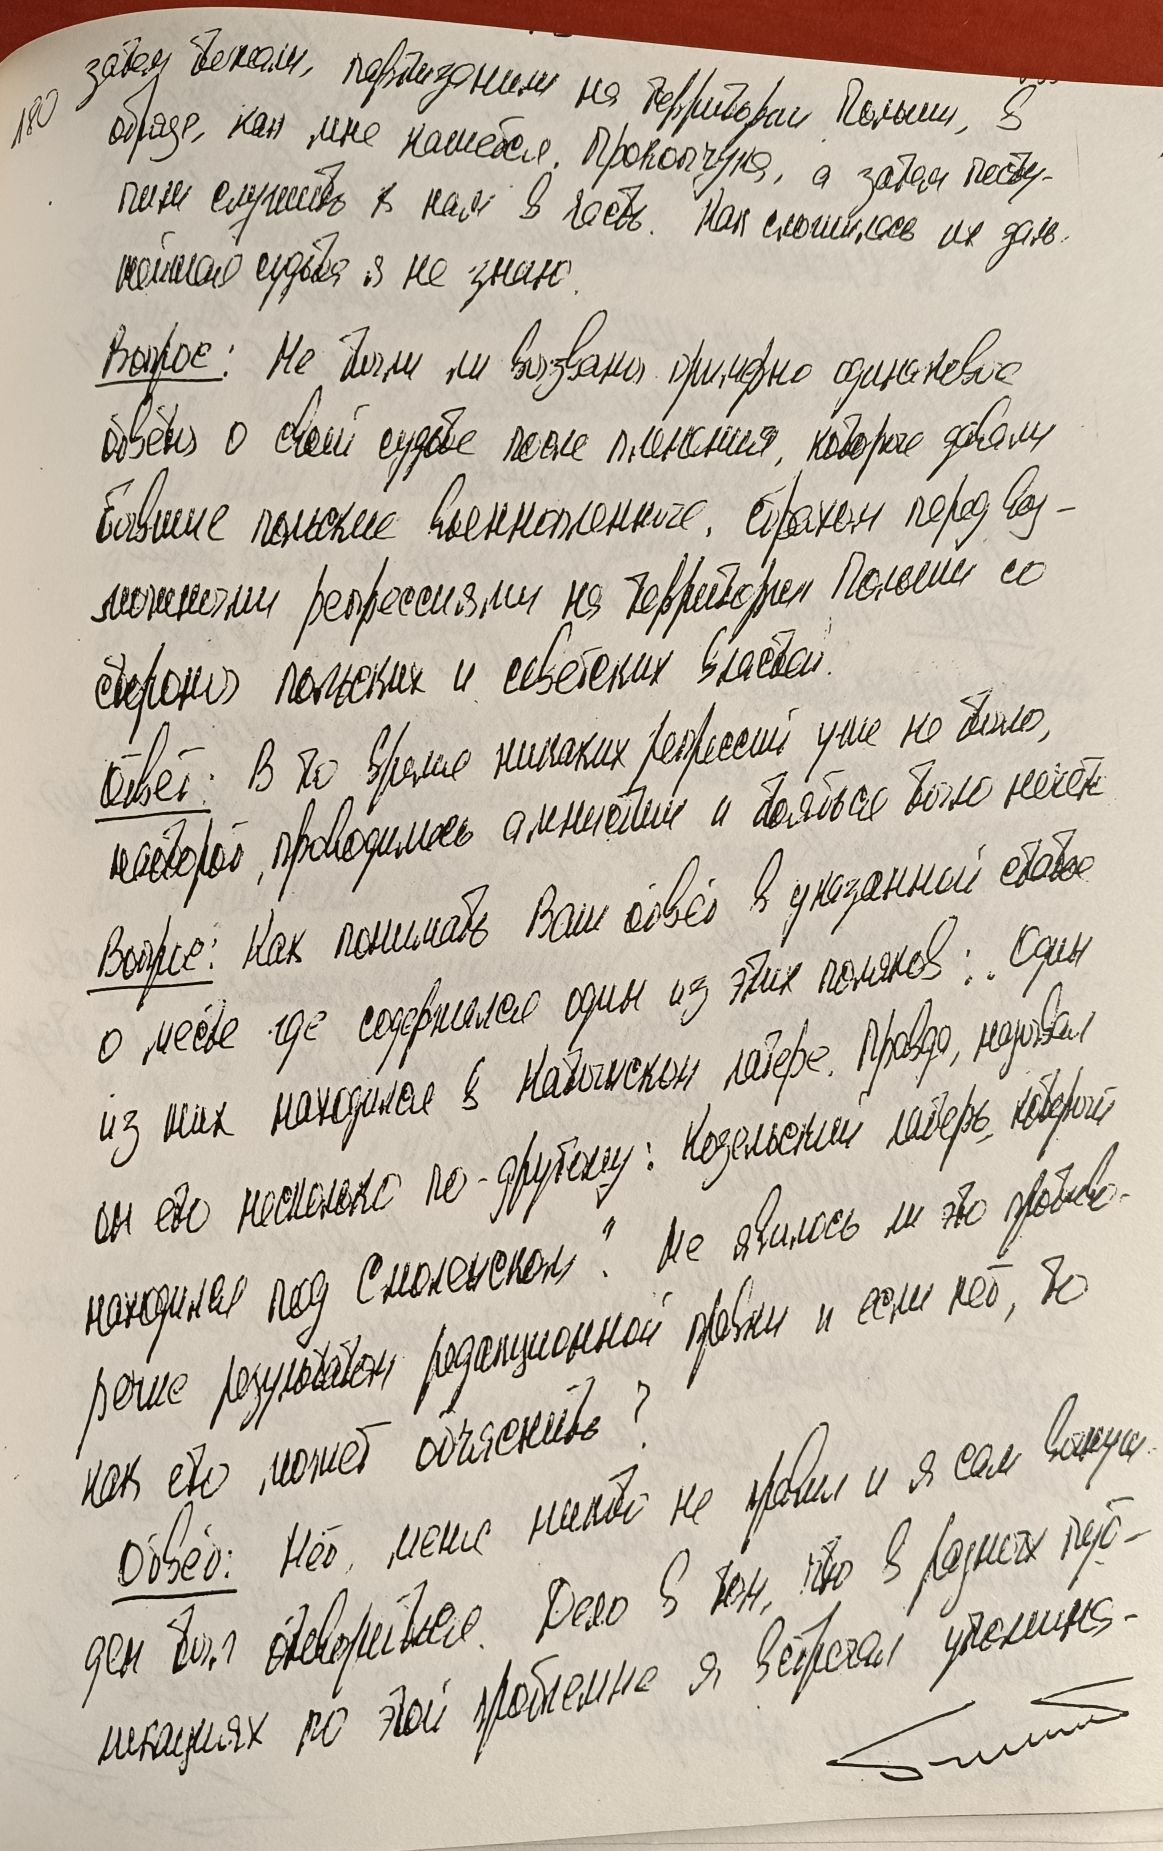 180
затем бежали, партизанили на территории Польши, в
отряде, как мне кажется, Прокопчука, а затем посту-
пили служить к нам в часть. Как сложилась их даль-
нейшая судьба я не знаю.
Вопрос: Не были ли вызваны примерно одинаковые
ответы о своей судьбе после пленения, которые давали
бывшие польские военнопленные, страхом перед воз-
можными репрессиями на территории Польши со
стороны польских и советских властей.
Ответ: В то время никаких репрессий уже не было,
наоборот, проводились амнистии и бояться было нечего
Вопрос: Как понимать Ваш ответ в указанной статье
о месте где содержался один из этих поляков: „Один
из них находился в Катынском лагере. Правда, называл
он его несколько по-другому: Козельский лагерь, который
находился под Смоленском"? Не явилось ли это противо-
речие результатом редакционной правки и если нет, то
как его может объяснить?
Ответ: Нет, меня никто не правил и я сам вынуж-
ден был оговориться. Дело в том, что в разных пуб-
ликациях по этой проблеме я встречал упомина-